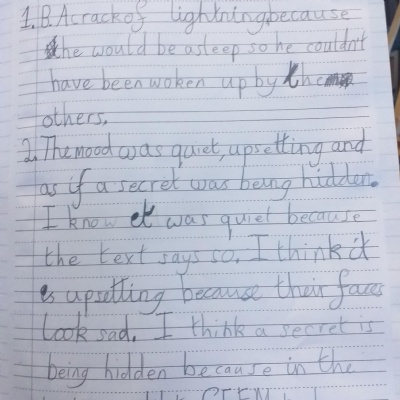 1. B. A crack of lightning, because
he would be asleep so he couldn't
have been woken up by the
others.
2. The mood was quiet, upsetting and
as if a secret was being hidden.
I know it was quiet because
the text says so. I think it
is upsetting because their faces
look sad. I think a secret is
being hidden because in the